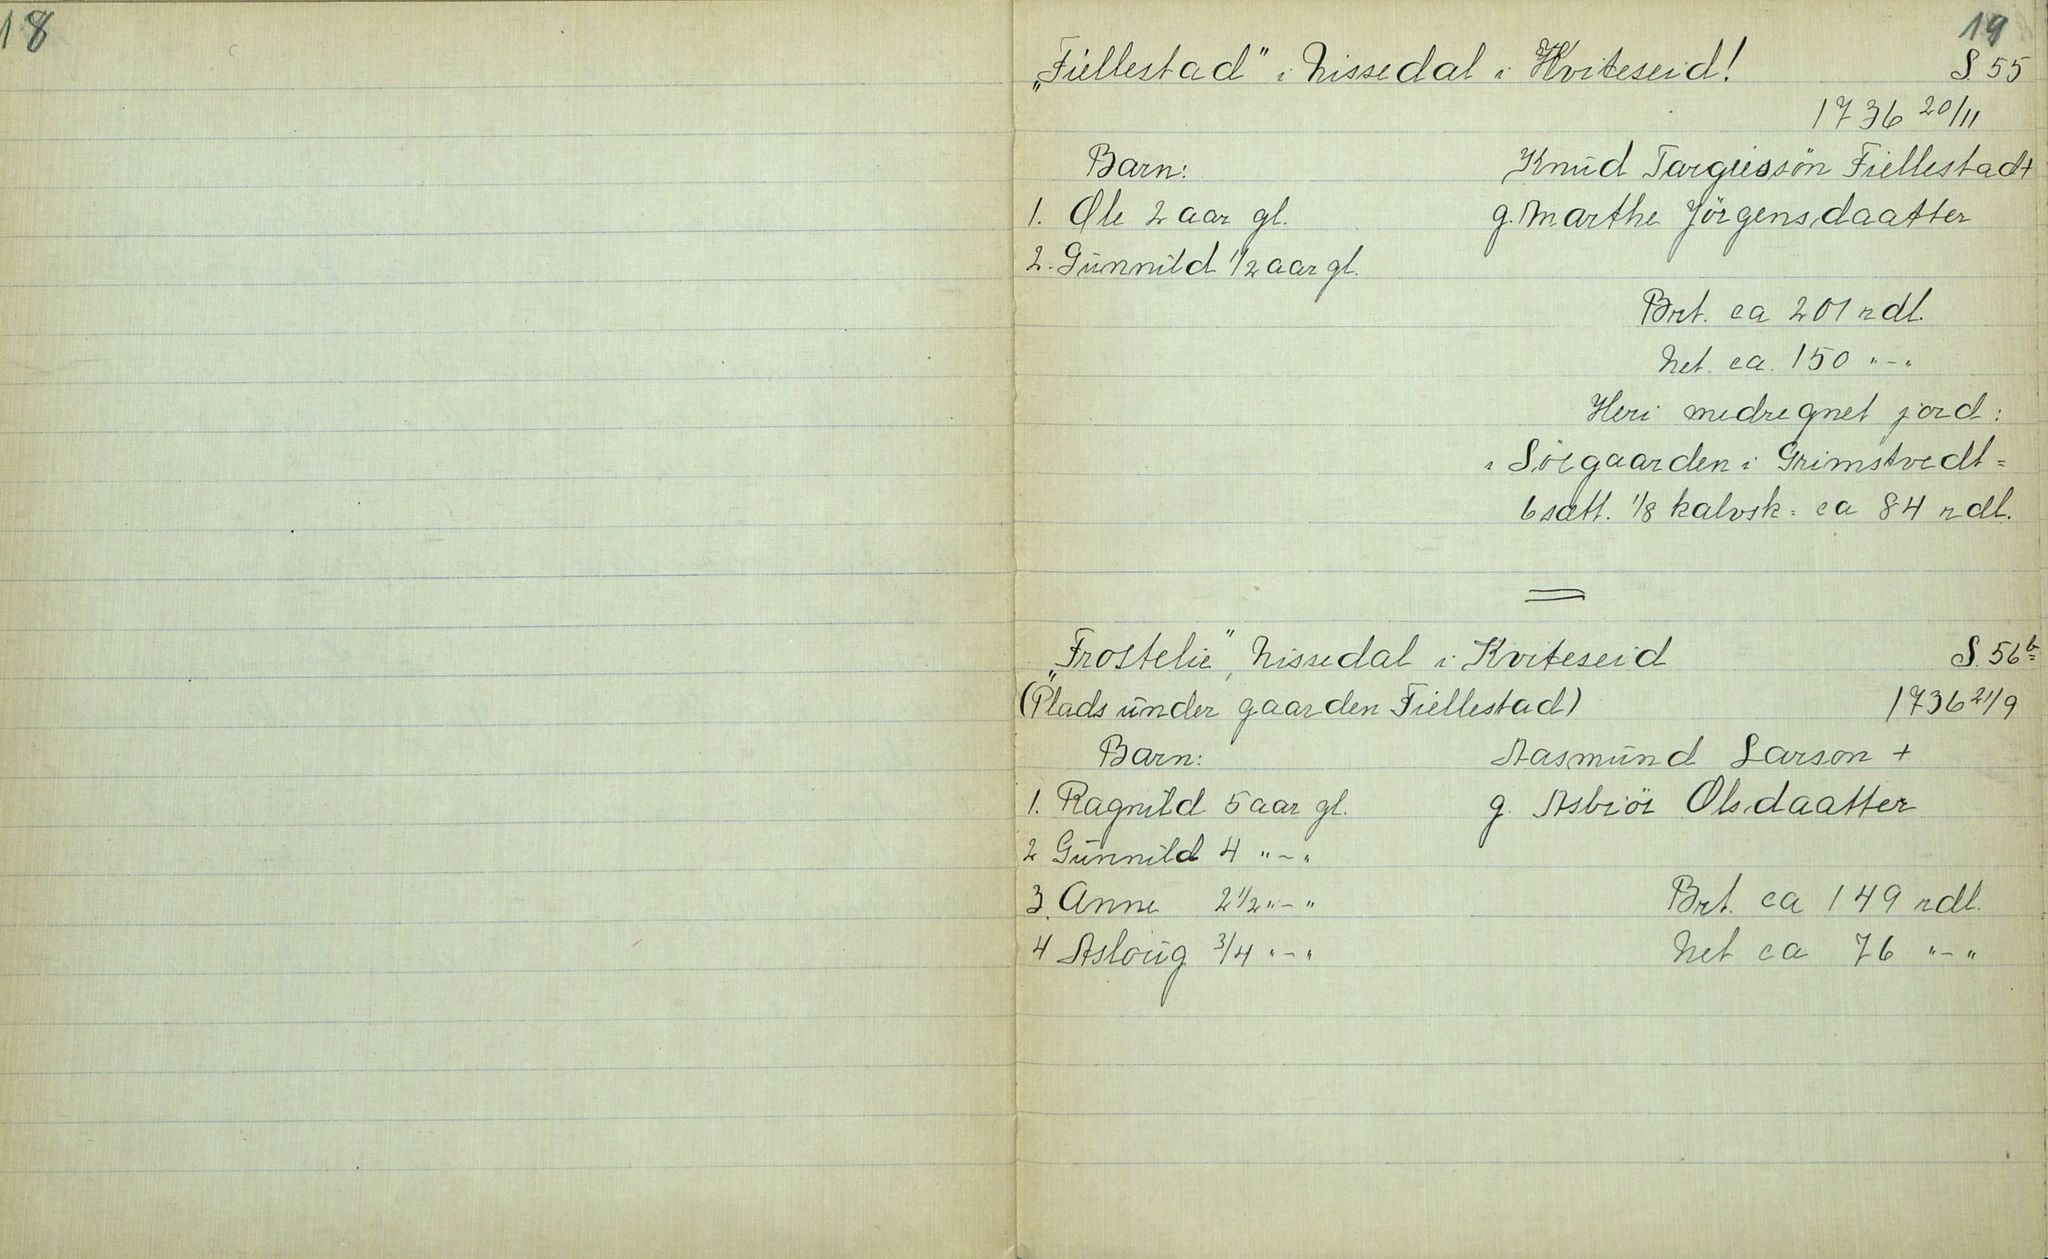 18
19
„Fiellestad" i Nissedal i Kviteseid! S. 55
1736 20/11
Barn: Knud Targiessön Fiellestad +
1. Ole 2 aar gl. g. Marthe Jörgensdaatter
2. Gunnild 1/2 aar gl.
Brt. ca 201 rdl.
Net. ca. 150 "-"
Heri medregnet jord:
i Söegaarden i Grimstvedt =
6 sætt. 1/8 kalvsk. = ca 84 rdl.
„Frostelie", Nissedal i Kviteseid S. 56 b
(Plads under gaarden Fiellestad) 1736 21/9
Barn: Aasmund Larson +
1. Ragnild 5 aar gl. g. Asbiör Olsdaatter
2 Gunnild 4 "-"
3. Anne 2 1/2 "-" Brt. ca 149 rdl.
4 Asloug 3/4 "-" Net ca 76 "-"